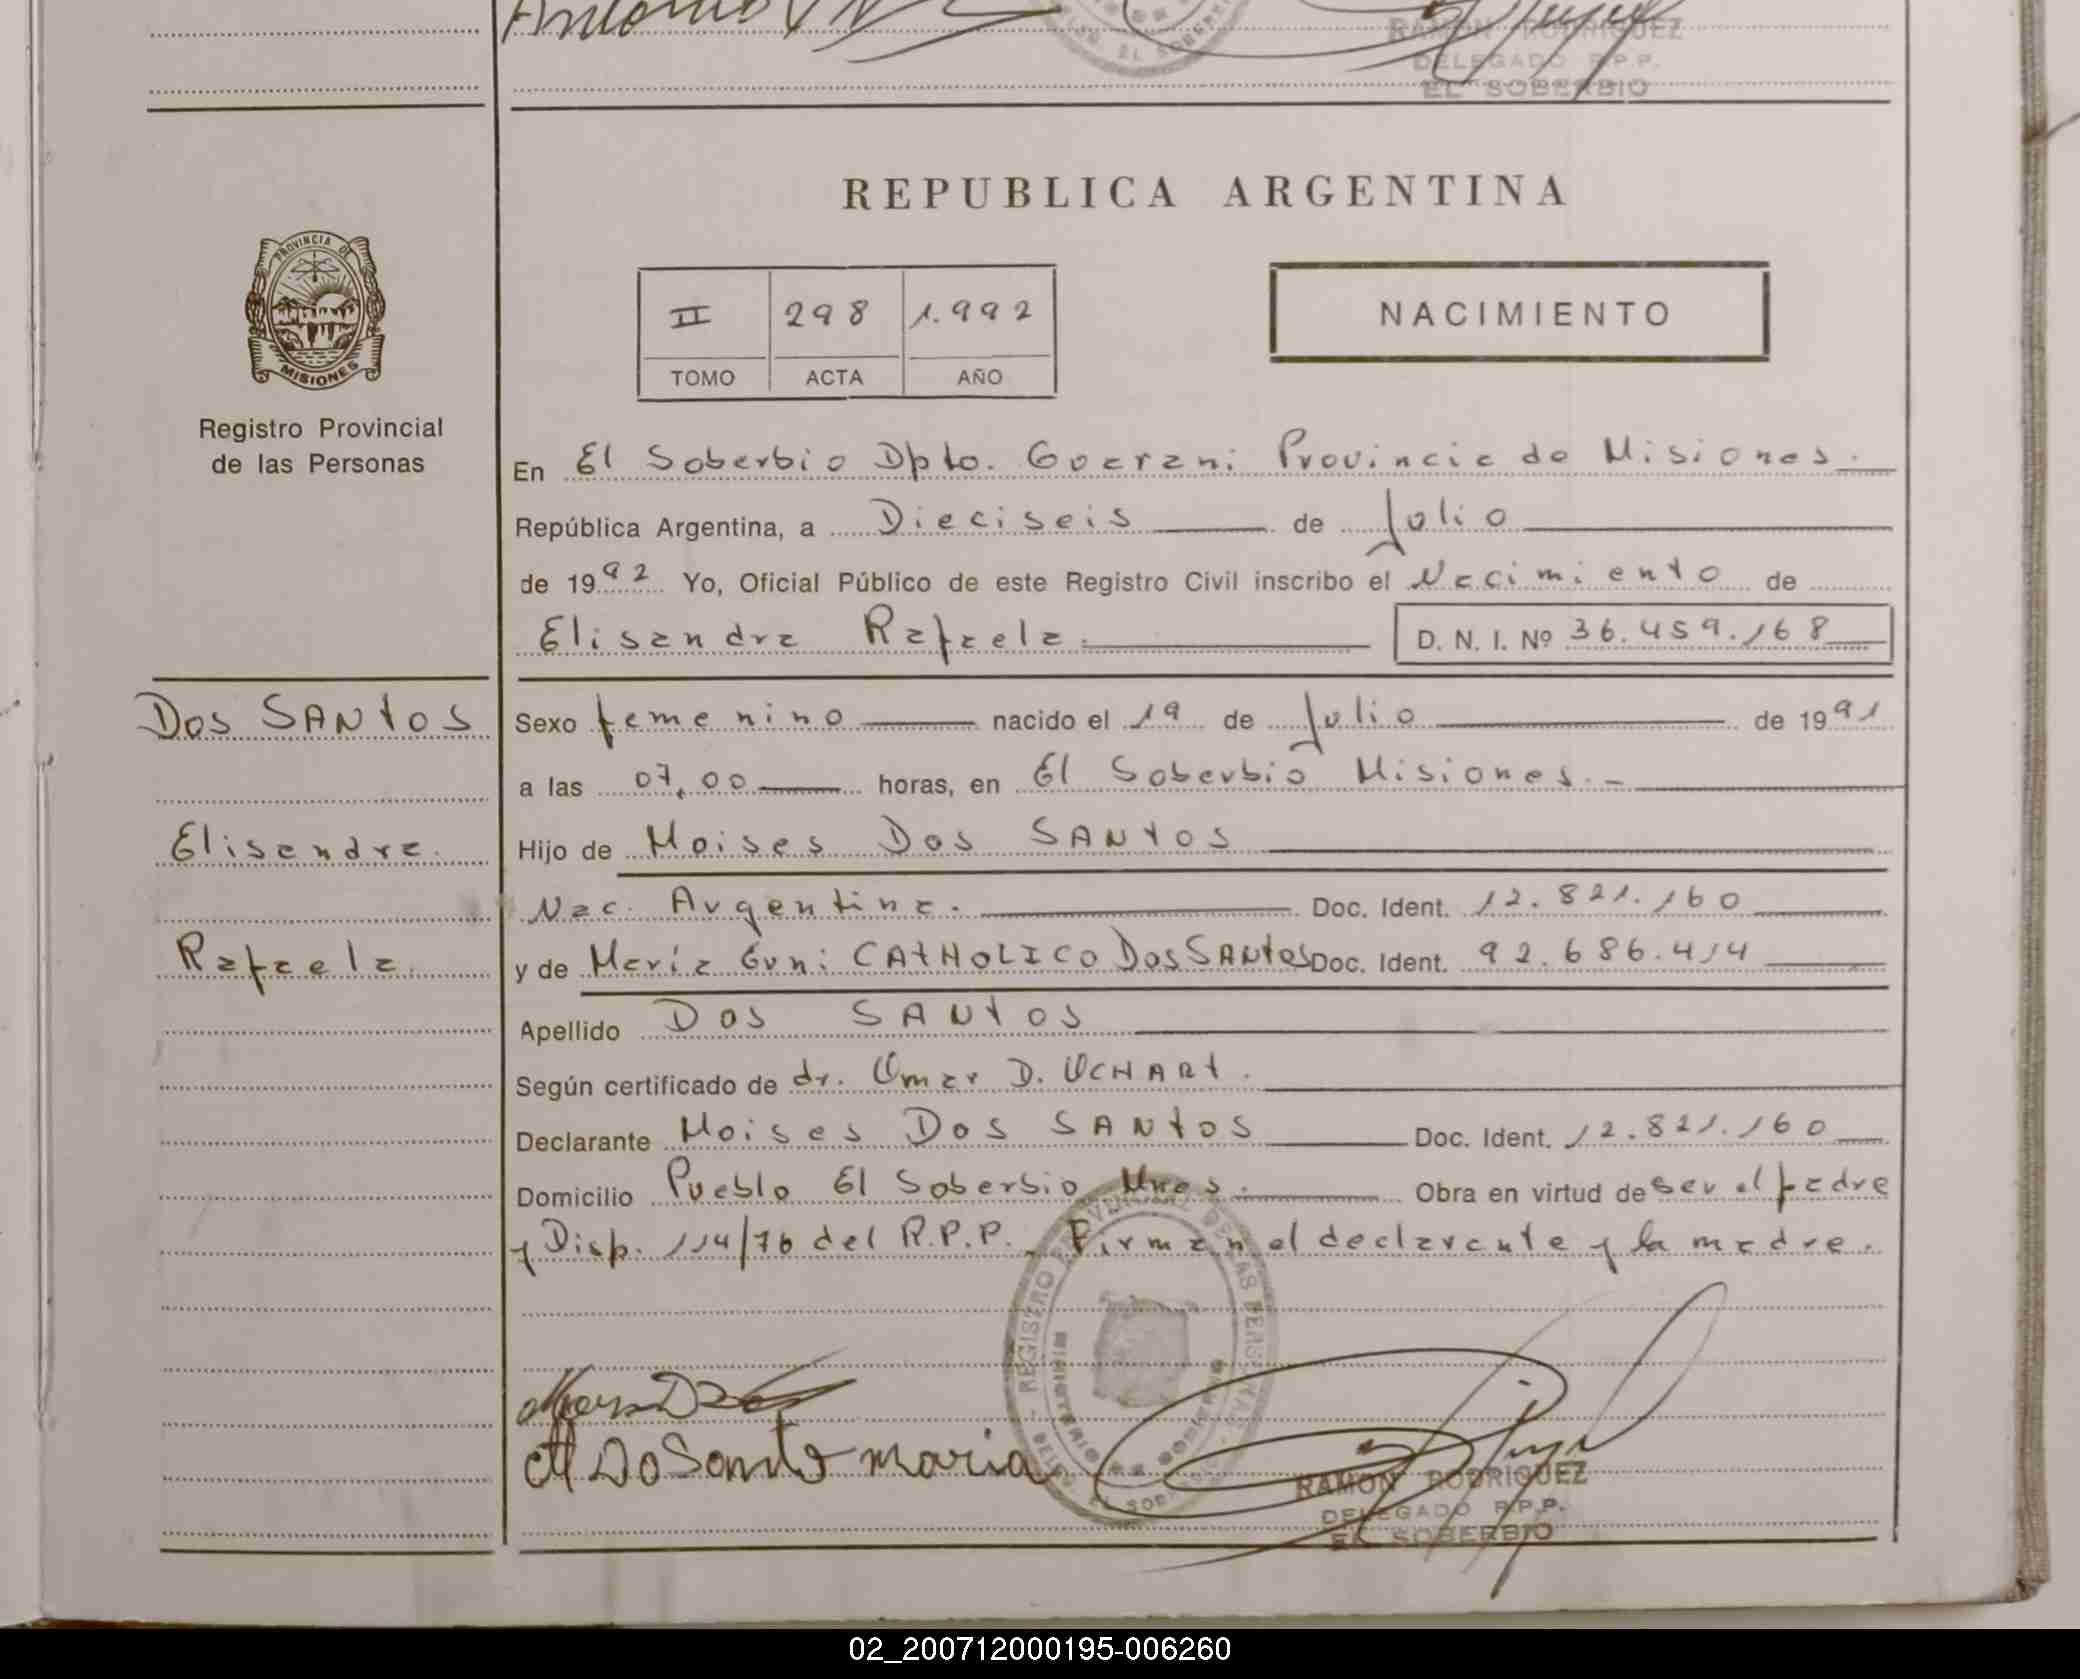 Antonio
EL SOBERBIO
RAMON RODRIGUEZ
DELEGADO R.P.P.
EL SOBERBIO
REPUBLICA ARGENTINA
PROVINCIA DE
MISIONES
Registro Provincial
de las Personas
II 298 1.992
TOMO ACTA AÑO
NACIMIENTO
En El Soberbio Dpto. Guarani Provincia de Misiones.
República Argentina, a Dieciseis de Julio
de 1992 Yo, Oficial Público de este Registro Civil inscribo el Nacimiento de
Elisandra Rafaela. D. N. I. Nº 36.459.168
Dos SANtos
Elisandra
Rafaela
Sexo femenino nacido el 19 de Julio de 1991
a las 07,00 horas, en El Soberbio Misiones.-
Hijo de Moises Dos SANtos
Nac. Argentina. Doc. Ident. 12.821.160
y de María Euni CAtHOLICO Dos SANtos Doc. Ident. 92.686.414
Apellido Dos SANtos
Según certificado de dr. Omar D. UCHARt.
Declarante Moises Dos SANtos Doc. Ident. 12.821.160
Domicilio Pueblo El Soberbio Mnes. Obra en virtud de ser el padre
y Disp. 114/76 del R.P.P.. Firman el declarante y la madre.
REGISTRO PROVINCIAL DE LAS PERSONAS
EL SOBERBIO
Do Santo maria
RAMON RODRIGUEZ
DELEGADO R.P.P.
EL SOBERBIO
02_200712000195-006260